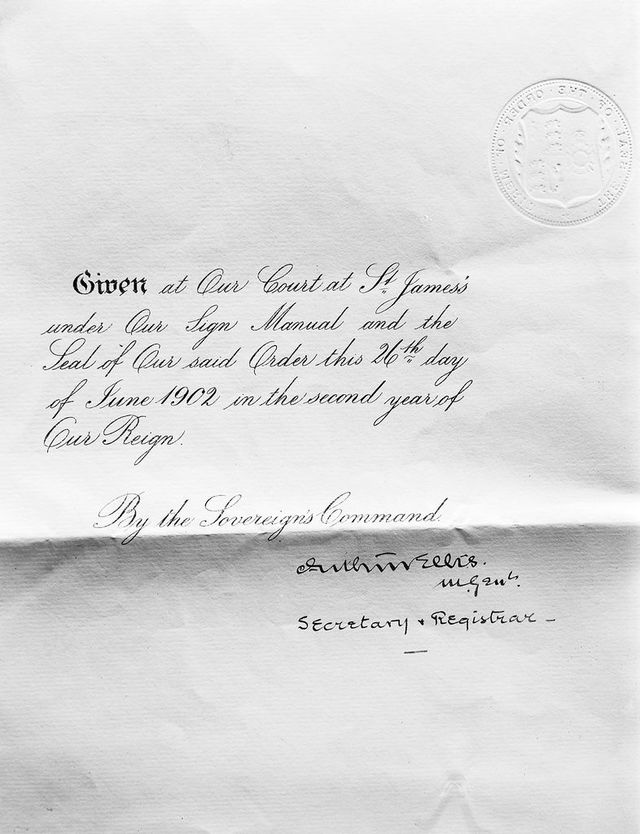 THE SEAL OF THE ORDER OF MERIT
Given at Our Court at St James's
under Our Sign Manual and the
Seal of Our said Order this 26th day
of June 1902 in the second year of
Our Reign.
By the Sovereign's Command.
Arthur Ellis.
M.Genl.
Secretary & Registrar –